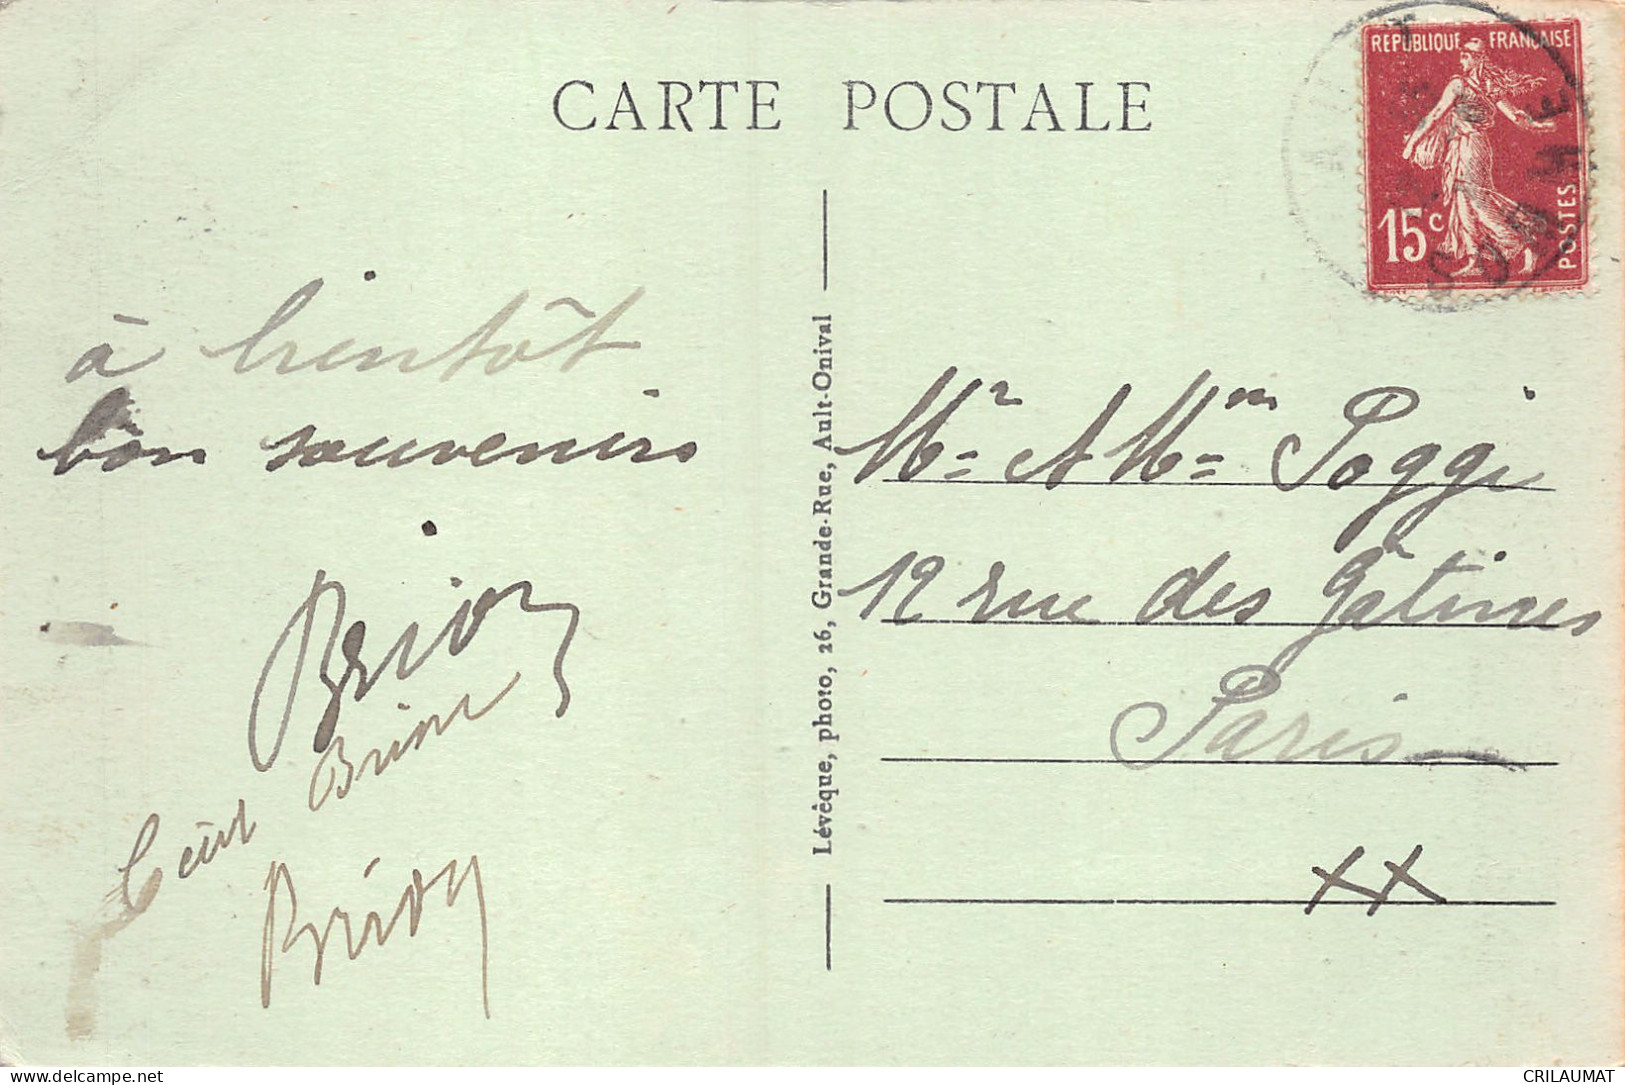 CARTE POSTALE
REPUBLIQUE FRANÇAISE
15c
POSTES
SOMME
à bientôt
bon souvenirs
Brion
Brion
Brion
Lévêque, photo, 26, Grande-Rue, Ault-Onival
Mr et Mme Poggi
12 rue des Gâtines
Paris
XX
delcampe.net
CRILAUMAT